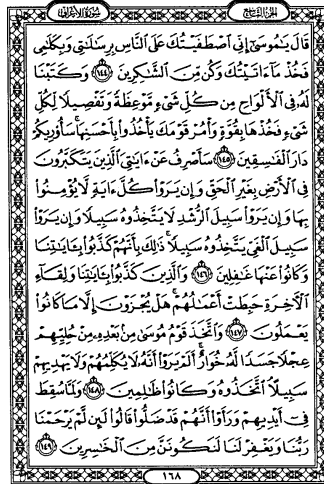 الجزء التاسع
سورة الأعراف
قَالَ يَٰمُوسَىٰٓ إِنِّى ٱصْطَفَيْتُكَ عَلَى ٱلنَّاسِ بِرِسَٰلَٰتِى وَبِكَلَٰمِى
فَخُذْ مَآ ءَاتَيْتُكَ وَكُن مِّنَ ٱلشَّٰكِرِينَ ١٤٤ وَكَتَبْنَا
لَهُۥ فِى ٱلْأَلْوَاحِ مِن كُلِّ شَىْءٍ مَّوْعِظَةً وَتَفْصِيلًا لِّكُلِّ
شَىْءٍ فَخُذْهَا بِقُوَّةٍ وَأْمُرْ قَوْمَكَ يَأْخُذُوا۟ بِأَحْسَنِهَا ۚ سَأُو۟رِيكُمْ
دَارَ ٱلْفَٰسِقِينَ ١٤٥ سَأَصْرِفُ عَنْ ءَايَٰتِىَ ٱلَّذِينَ يَتَكَبَّرُونَ
فِى ٱلْأَرْضِ بِغَيْرِ ٱلْحَقِّ وَإِن يَرَوْا۟ كُلَّ ءَايَةٍ لَّا يُؤْمِنُوا۟
بِهَا وَإِن يَرَوْا۟ سَبِيلَ ٱلرُّشْدِ لَا يَتَّخِذُوهُ سَبِيلًا وَإِن يَرَوْا۟
سَبِيلَ ٱلْغَىِّ يَتَّخِذُوهُ سَبِيلًا ۚ ذَٰلِكَ بِأَنَّهُمْ كَذَّبُوا۟ بِـَٔايَٰتِنَا
وَكَانُوا۟ عَنْهَا غَٰفِلِينَ ١٤٦ وَٱلَّذِينَ كَذَّبُوا۟ بِـَٔايَٰتِنَا وَلِقَآءِ
ٱلْأَخِرَةِ حَبِطَتْ أَعْمَٰلُهُمْ ۚ هَلْ يُجْزَوْنَ إِلَّا مَا كَانُوا۟
يَعْمَلُونَ ١٤٧ وَٱتَّخَذَ قَوْمُ مُوسَىٰ مِنۢ بَعْدِهِۦ مِنْ حُلِيِّهِمْ
عِجْلًا جَسَدًا لَّهُۥ خُوَارٌ ۚ أَلَمْ يَرَوْا۟ أَنَّهُۥ لَا يُكَلِّمُهُمْ وَلَا يَهْدِيهِمْ
سَبِيلًا ۘ ٱتَّخَذُوهُ وَكَانُوا۟ ظَٰلِمِينَ ١٤٨ وَلَمَّا سُقِطَ
فِىٓ أَيْدِيهِمْ وَرَأَوْا۟ أَنَّهُمْ قَدْ ضَلُّوا۟ قَالُوا۟ لَئِن لَّمْ يَرْحَمْنَا
رَبُّنَا وَيَغْفِرْ لَنَا لَنَكُونَنَّ مِنَ ٱلْخَٰسِرِينَ ١٤٩
١٦٨